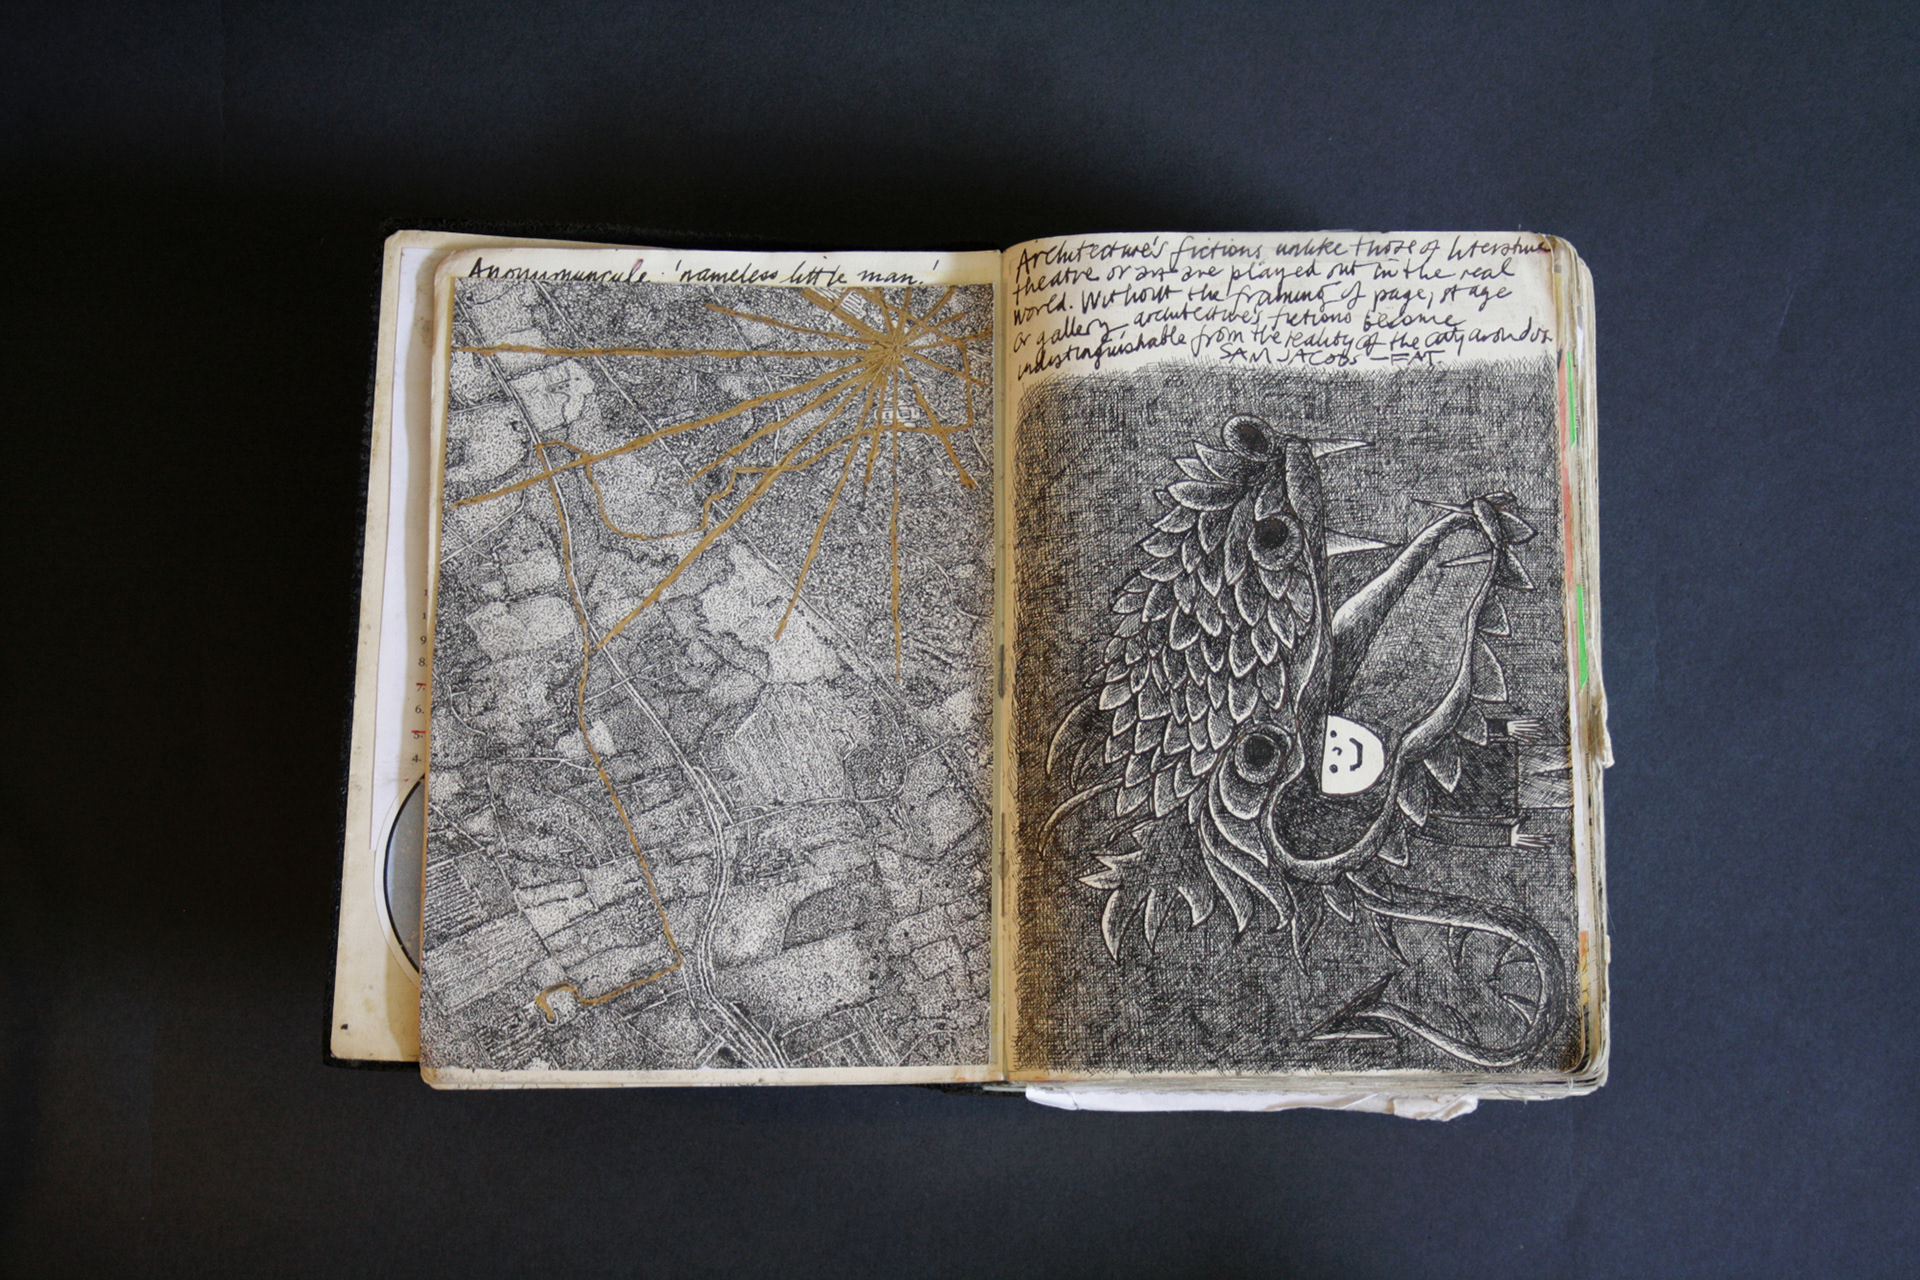 Anonumuncule. 'nameless little man.'
Architecture's fictions unlike those of literature
theatre or art are played out in the real
world. Without the framing of page, stage
or gallery architecture's fictions become
indistinguishable from the reality of the city around us.
SAM JACOBS – FAT.
9.
8.
7.
6.
5.
4.